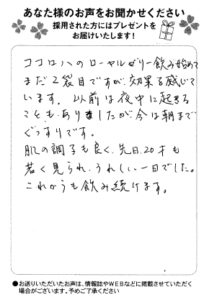 あなた様のお声をお聞かせください
採用された方にはプレゼントを
お届けいたします!
ココロハのローヤルゼリー飲み始めて
まだ2袋目ですが効果を感じて
います。以前は夜中に起きる
こともありましたが今は朝まで
ぐっすりです。
肌の調子も良く、先日20才も
若く見られ、うれしい一日でした。
これからも飲み続けます。
●お送りいただいたお声は、情報誌やWEBなどに掲載させていただく
場合がございます。予めご了承ください